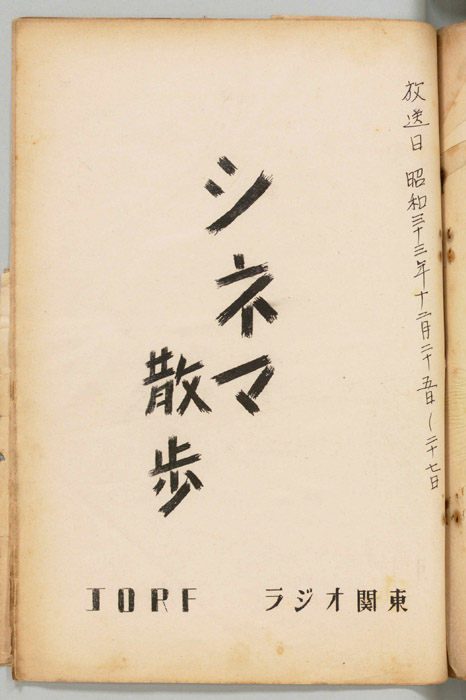 放送日 昭和三十三年十二月二十五日〜二十七日
シネマ
散歩
JORF ラジオ関東